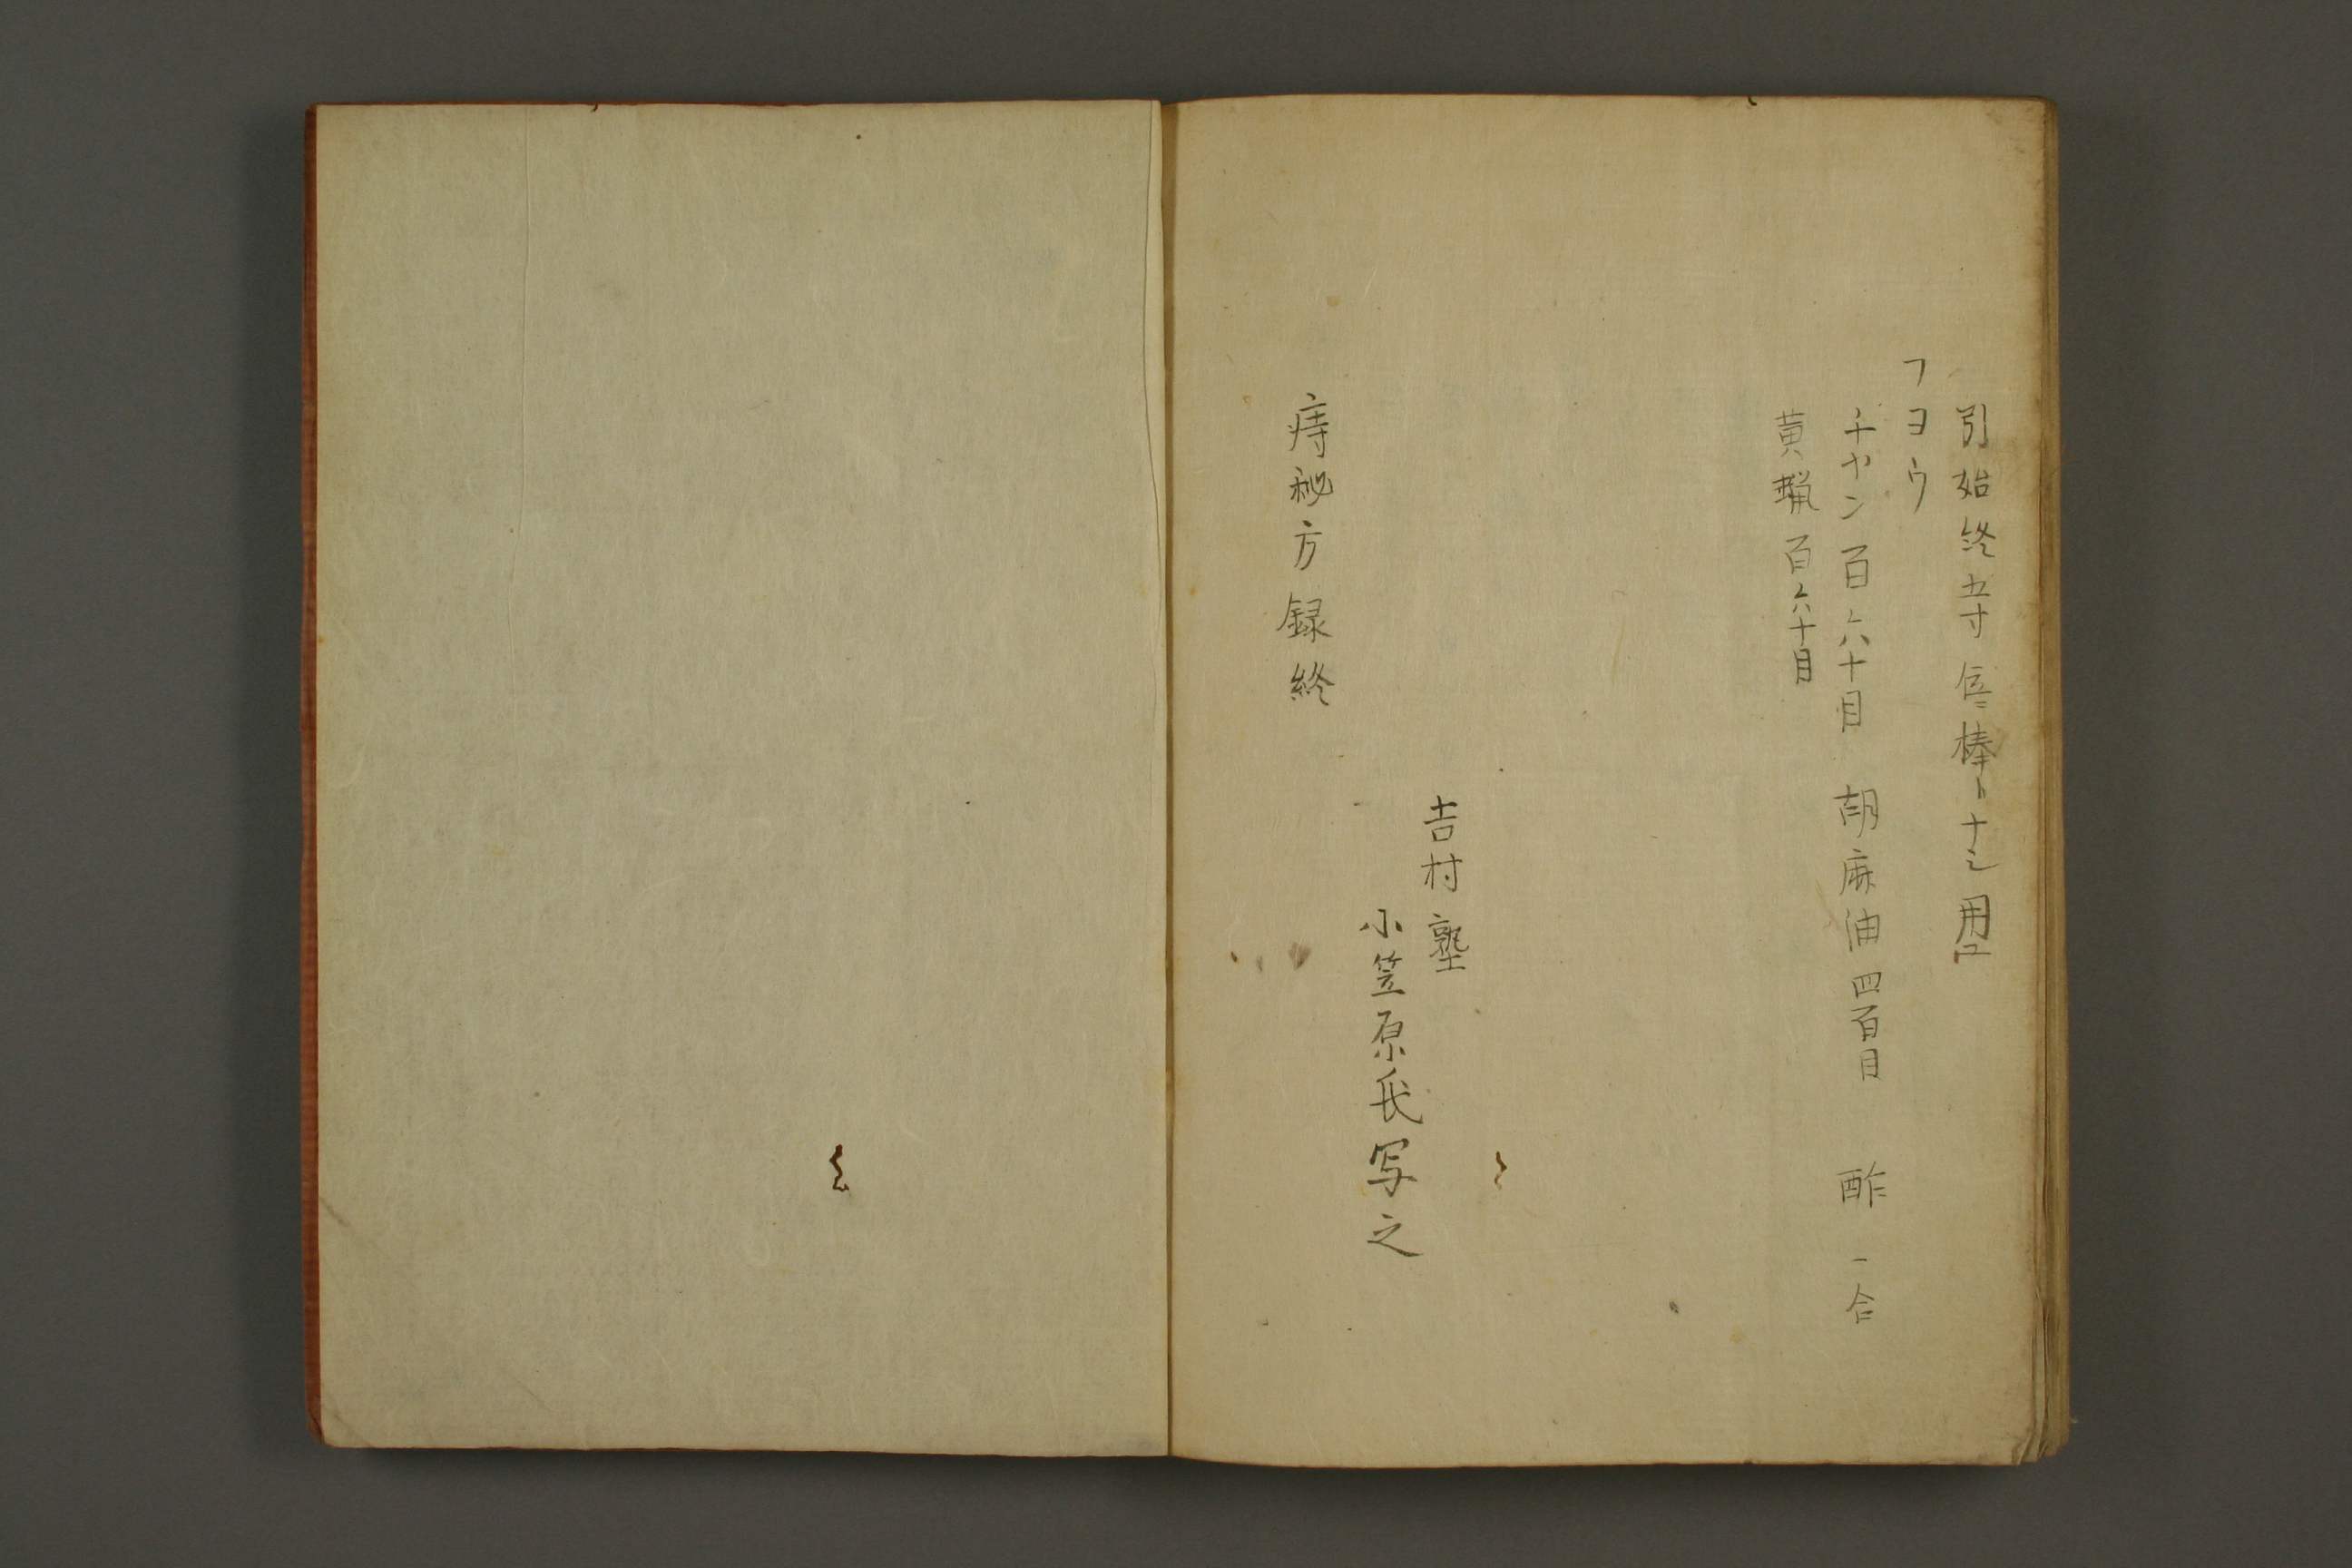 引始終五寸位ニ棒トナシ用ユ
フヨウ
チヤン百六十目 胡麻油四百目 酢一合
黄蝋百六十目
吉村塾
小笠原氏写之
痔秘方録終